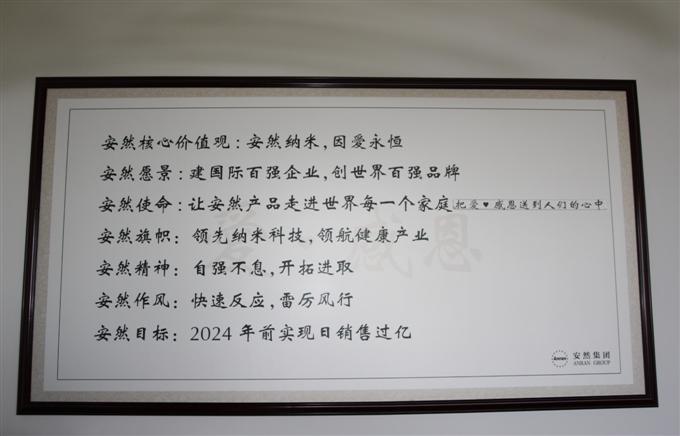 安然核心价值观：安然纳米，因爱永恒
安然愿景：建国际百强企业，创世界百强品牌
安然使命：让安然产品走进世界每一个家庭 把爱♥感恩送到人们的心中
安然旗帜：领先纳米科技，领航健康产业
安然精神：自强不息，开拓进取
安然作风：快速反应，雷厉风行
安然目标：2024年前实现日销售过亿
感恩
Anran
安然集团
ANRAN GROUP